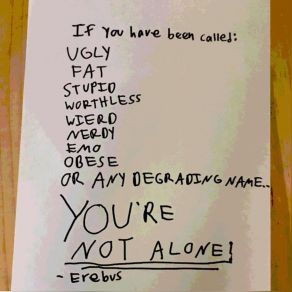 If you have been called:
UGLY
FAT
STUPID
WORTHLESS
WIERD
NERDY
EMO
OBESE
OR ANY DEGRADING NAME..
YOU'RE
NOT ALONE!
- Erebus